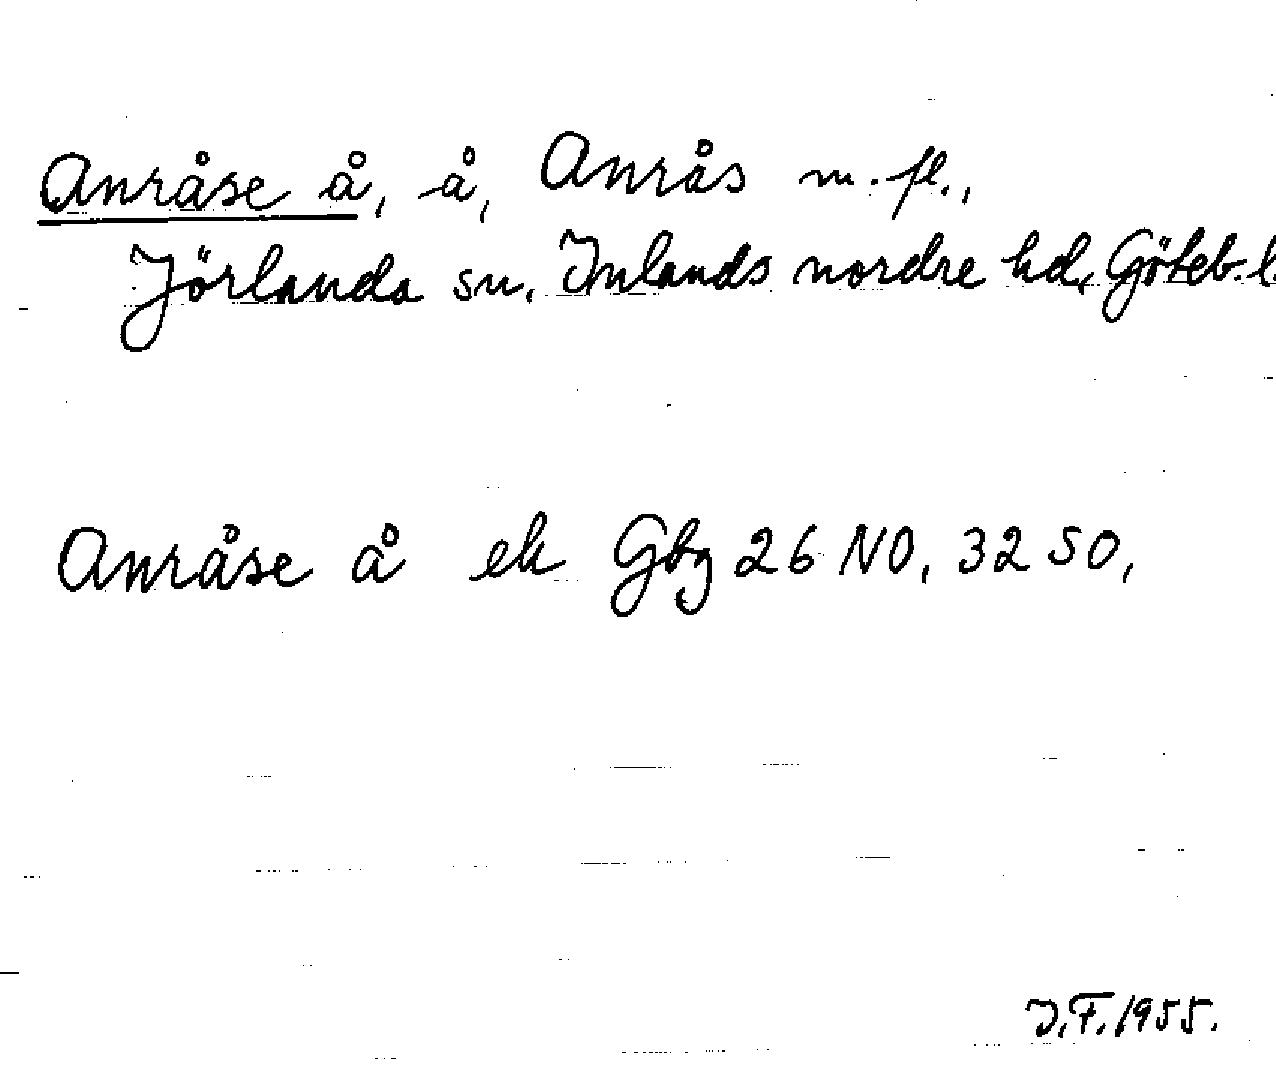 Anråse å, å, Anrås m.fl.,
Jörlanda sn, Inlands nordre hd, Göteb. l
Anråse å ek Gbg 26 NO, 32 SO,
J.F. 1955.